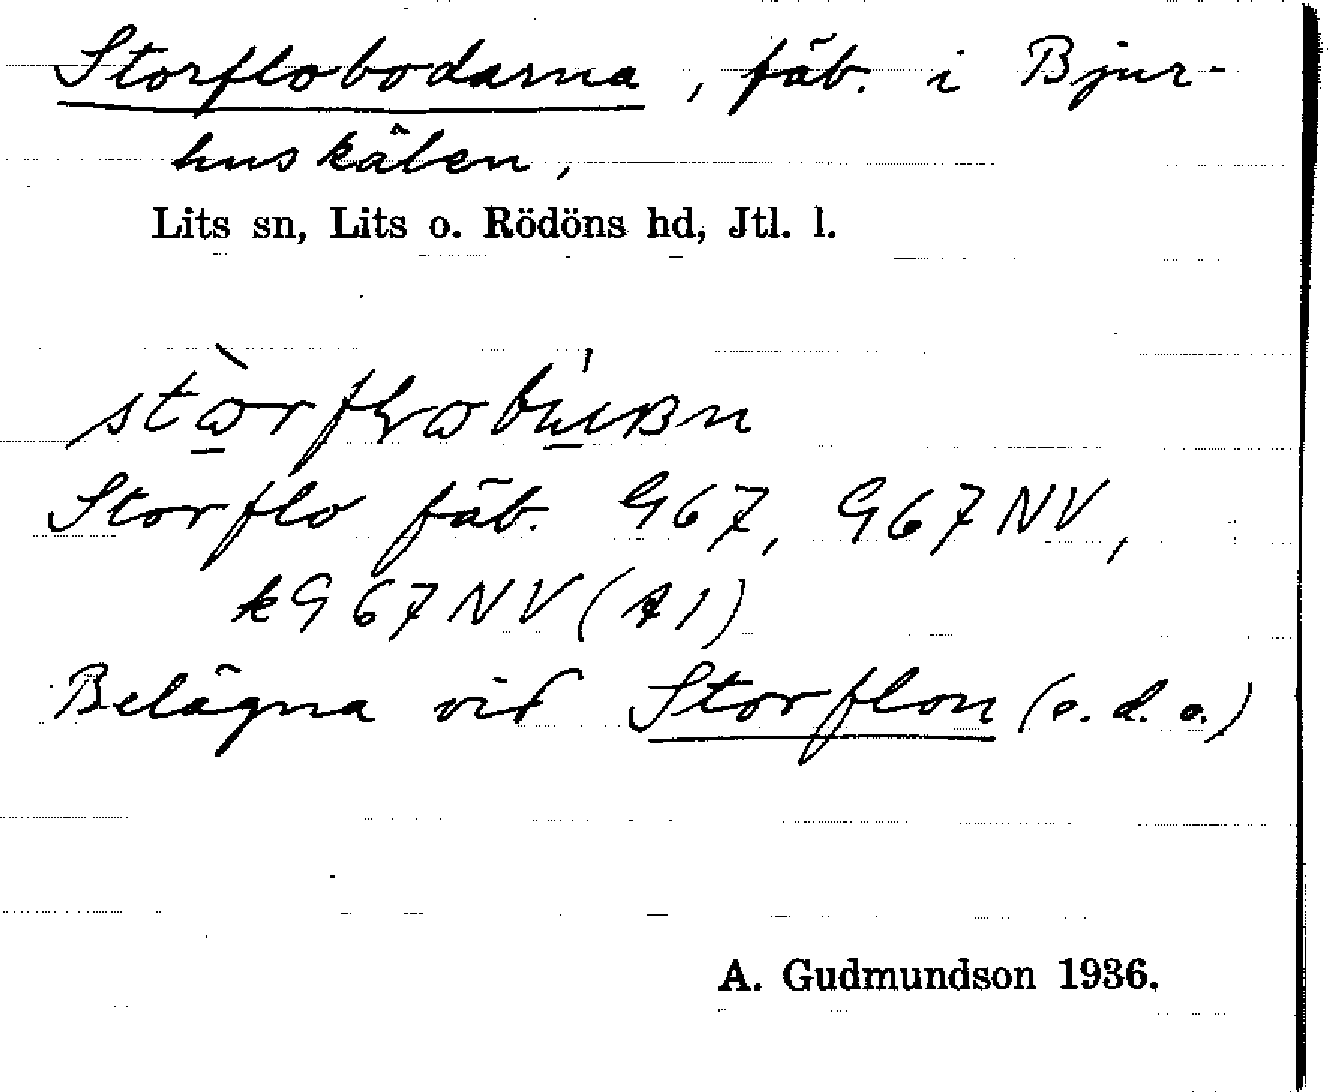 Storflobodarna, fäb. i Bjur-
huskälen,
Lits sn, Lits o. Rödöns hd, Jtl. l.
Storflo fäb. G67, G67NV,
kG67NV(A1)
Belägna vid Storflon (s.d.o.)
A. Gudmundson 1936.